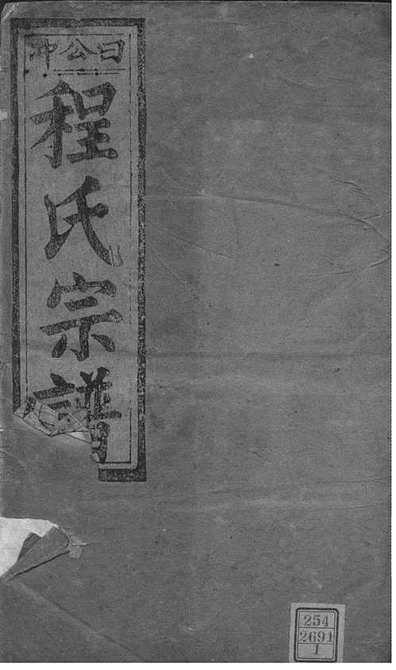 曰公中
程氏宗譜
254
2691
1